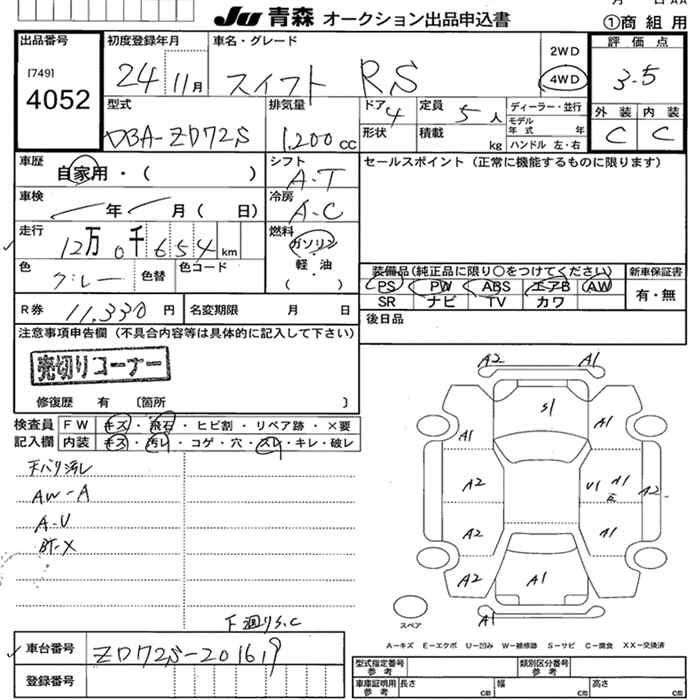 JU 青森 オークション出品申込書
月 日 AA
①商組用
出品番号
[749]
4052
初度登録年月
24 11月
車名・グレード
スイフト RS
2WD
4WD
評価点
3.5
外装 内装
C C
型式
DBA-ZD72S
排気量
1,200cc
ドア 4
形状
定員 5人
積載 kg
ディーラー・並行
モデル年式 年
ハンドル 左・右
車歴
自家用・( )
シフト
A-T
セールスポイント(正常に機能するものに限ります)
車検
年 月( 日)
冷房
A-C
走行
12万0千654km
燃料
ガソリン
軽・油
( )
色
グレー
色替
色コード
装備品(純正品に限り○をつけてください)
新車保証書
PS PW ABS エアB AW
SR ナビ TV カワ
有・無
R券
11,330円
名変期限 月 日
後日品
注意事項申告欄(不具合内容等は具体的に記入して下さい)
売切りコーナー
修復歴 有 〔箇所 〕
検査員記入欄
FW キズ・飛石・ヒビ割・リペア跡・×要
内装 キズ・汚レ・コゲ・穴・スレ・キレ・破レ
天バリ汚レ
AW-A
A-U
BT-X
下廻りS,C
A2 A1
S1
A1 A1
A2 U1 A1 A2
A2 A1
A2 A1
A1
スペア
A－キズ E－エクボ U－凹み W－補修跡 S－サビ C－腐食 XX－交換済
車台番号
ZD72S-201619
登録番号
型式指定番号 参考
類別区分番号 参考
車庫証明用 参考
長さ cm 幅 cm 高さ cm